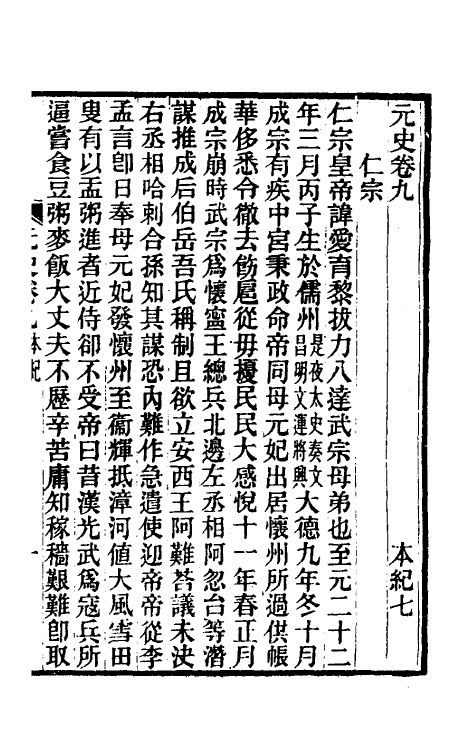 元史卷九　本紀七
仁宗
仁宗皇帝諱愛育黎拔力八達武宗母弟也至元二十二
年三月丙子生於儒州是夜太史奏文昌明文運將興大德九年冬十月
成宗有疾中宮秉政命帝同母元妃出居懷州所過供帳
華侈悉令徹去飭扈從毋擾民民大感悅十一年春正月
成宗崩時武宗爲懷寧王總兵北邊左丞相阿忽台等潛
謀推成后伯岳吾氏稱制且欲立安西王阿難荅議未決
右丞相哈剌合孫知其謀恐內難作急遣使迎帝帝從李
孟言卽日奉母元妃發懷州至衞輝抵漳河値大風雪田
叟有以盂粥進者近侍卻不受帝曰昔漢光武爲寇兵所
逼嘗食豆粥麥飯大丈夫不歷辛苦庸知稼穡艱難卽取
元史卷九本紀　一